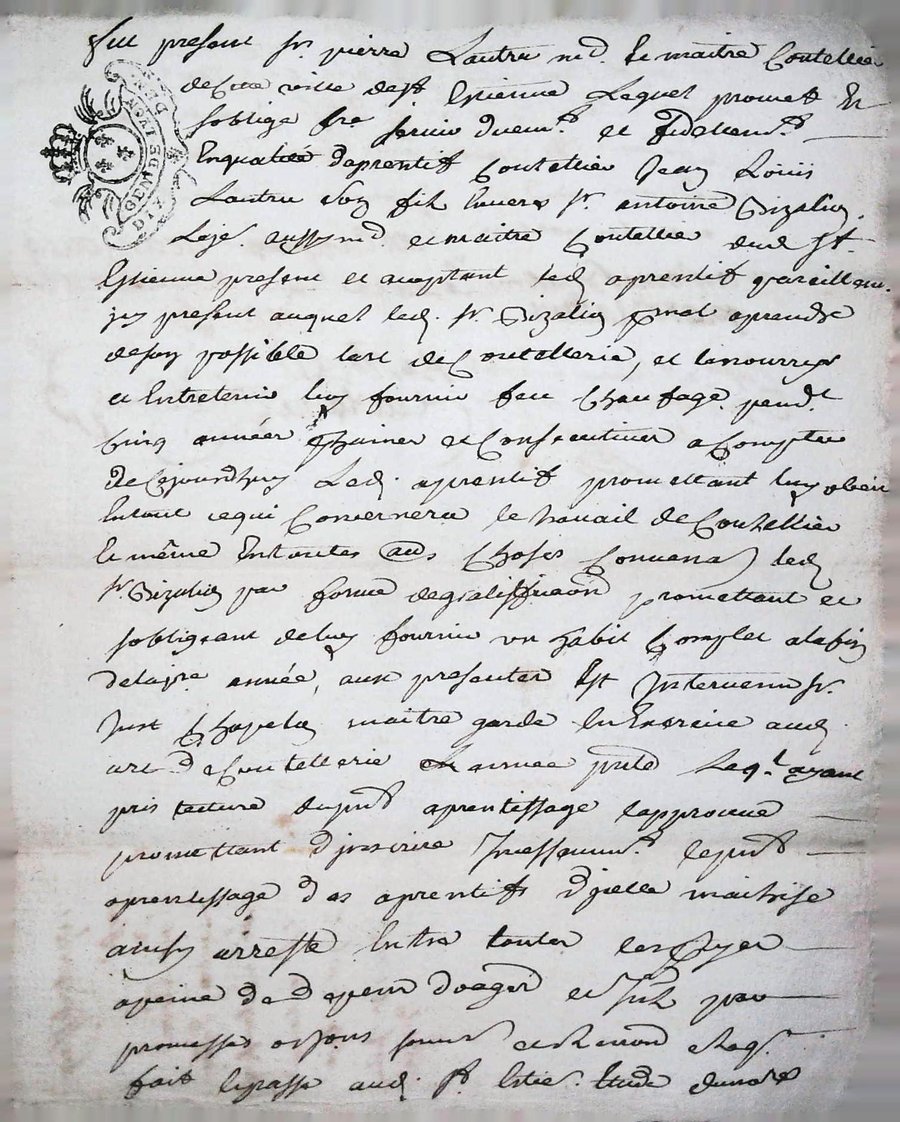 fut present sr. pierre Lautru md. & maitre Coutellier
de cette ville de st. Estienne Lequel promet et
soblige fre servir duem.t et fidellem.t
En qualité d'aprentif Coutellier Jean Louis
Lautru son fils Envers sr. antoine Dizalin
Laisé. aussy md. et maitre Coutellier dud. st.
Estienne present et aceptant led. aprentif y travaillan.
icy present auquel led. sr. Dizalin promet aprendre
de son possible lart de Coutellerie, et le nourrir
et Entretenir luy fournir feu Chaufage pend.t
Cinq années et Consecutives a Compter
de Cejourdhuy Led. aprentif promettant luy obeir
En tout ce qui Concernera le travail de Coutellier
le même En toutes Choses Convena led.
sr. Dizalin par forme de gratiffication promettant et
sobligeant de luy fournir un habit Complet a la fin
de la pre. année, aux presentes Est Intervenu sr.
Just Chapelon maitre garde En Exercice aud.
art de Coutellerie année pnte Leq.l ayant
pris lecture du pnt aprentissage lapprouve
promettant d'inscrire Incessamm.t le pnt
aprentissage des aprentifs d'icelle maitrise
ainsy arresté Entre toutes les
a peine de depens et Int. par
promesses ob.ons soum. et renon. et aq.
fait & passé aud. st. Estie. Etude du nore
GEN DE LYON